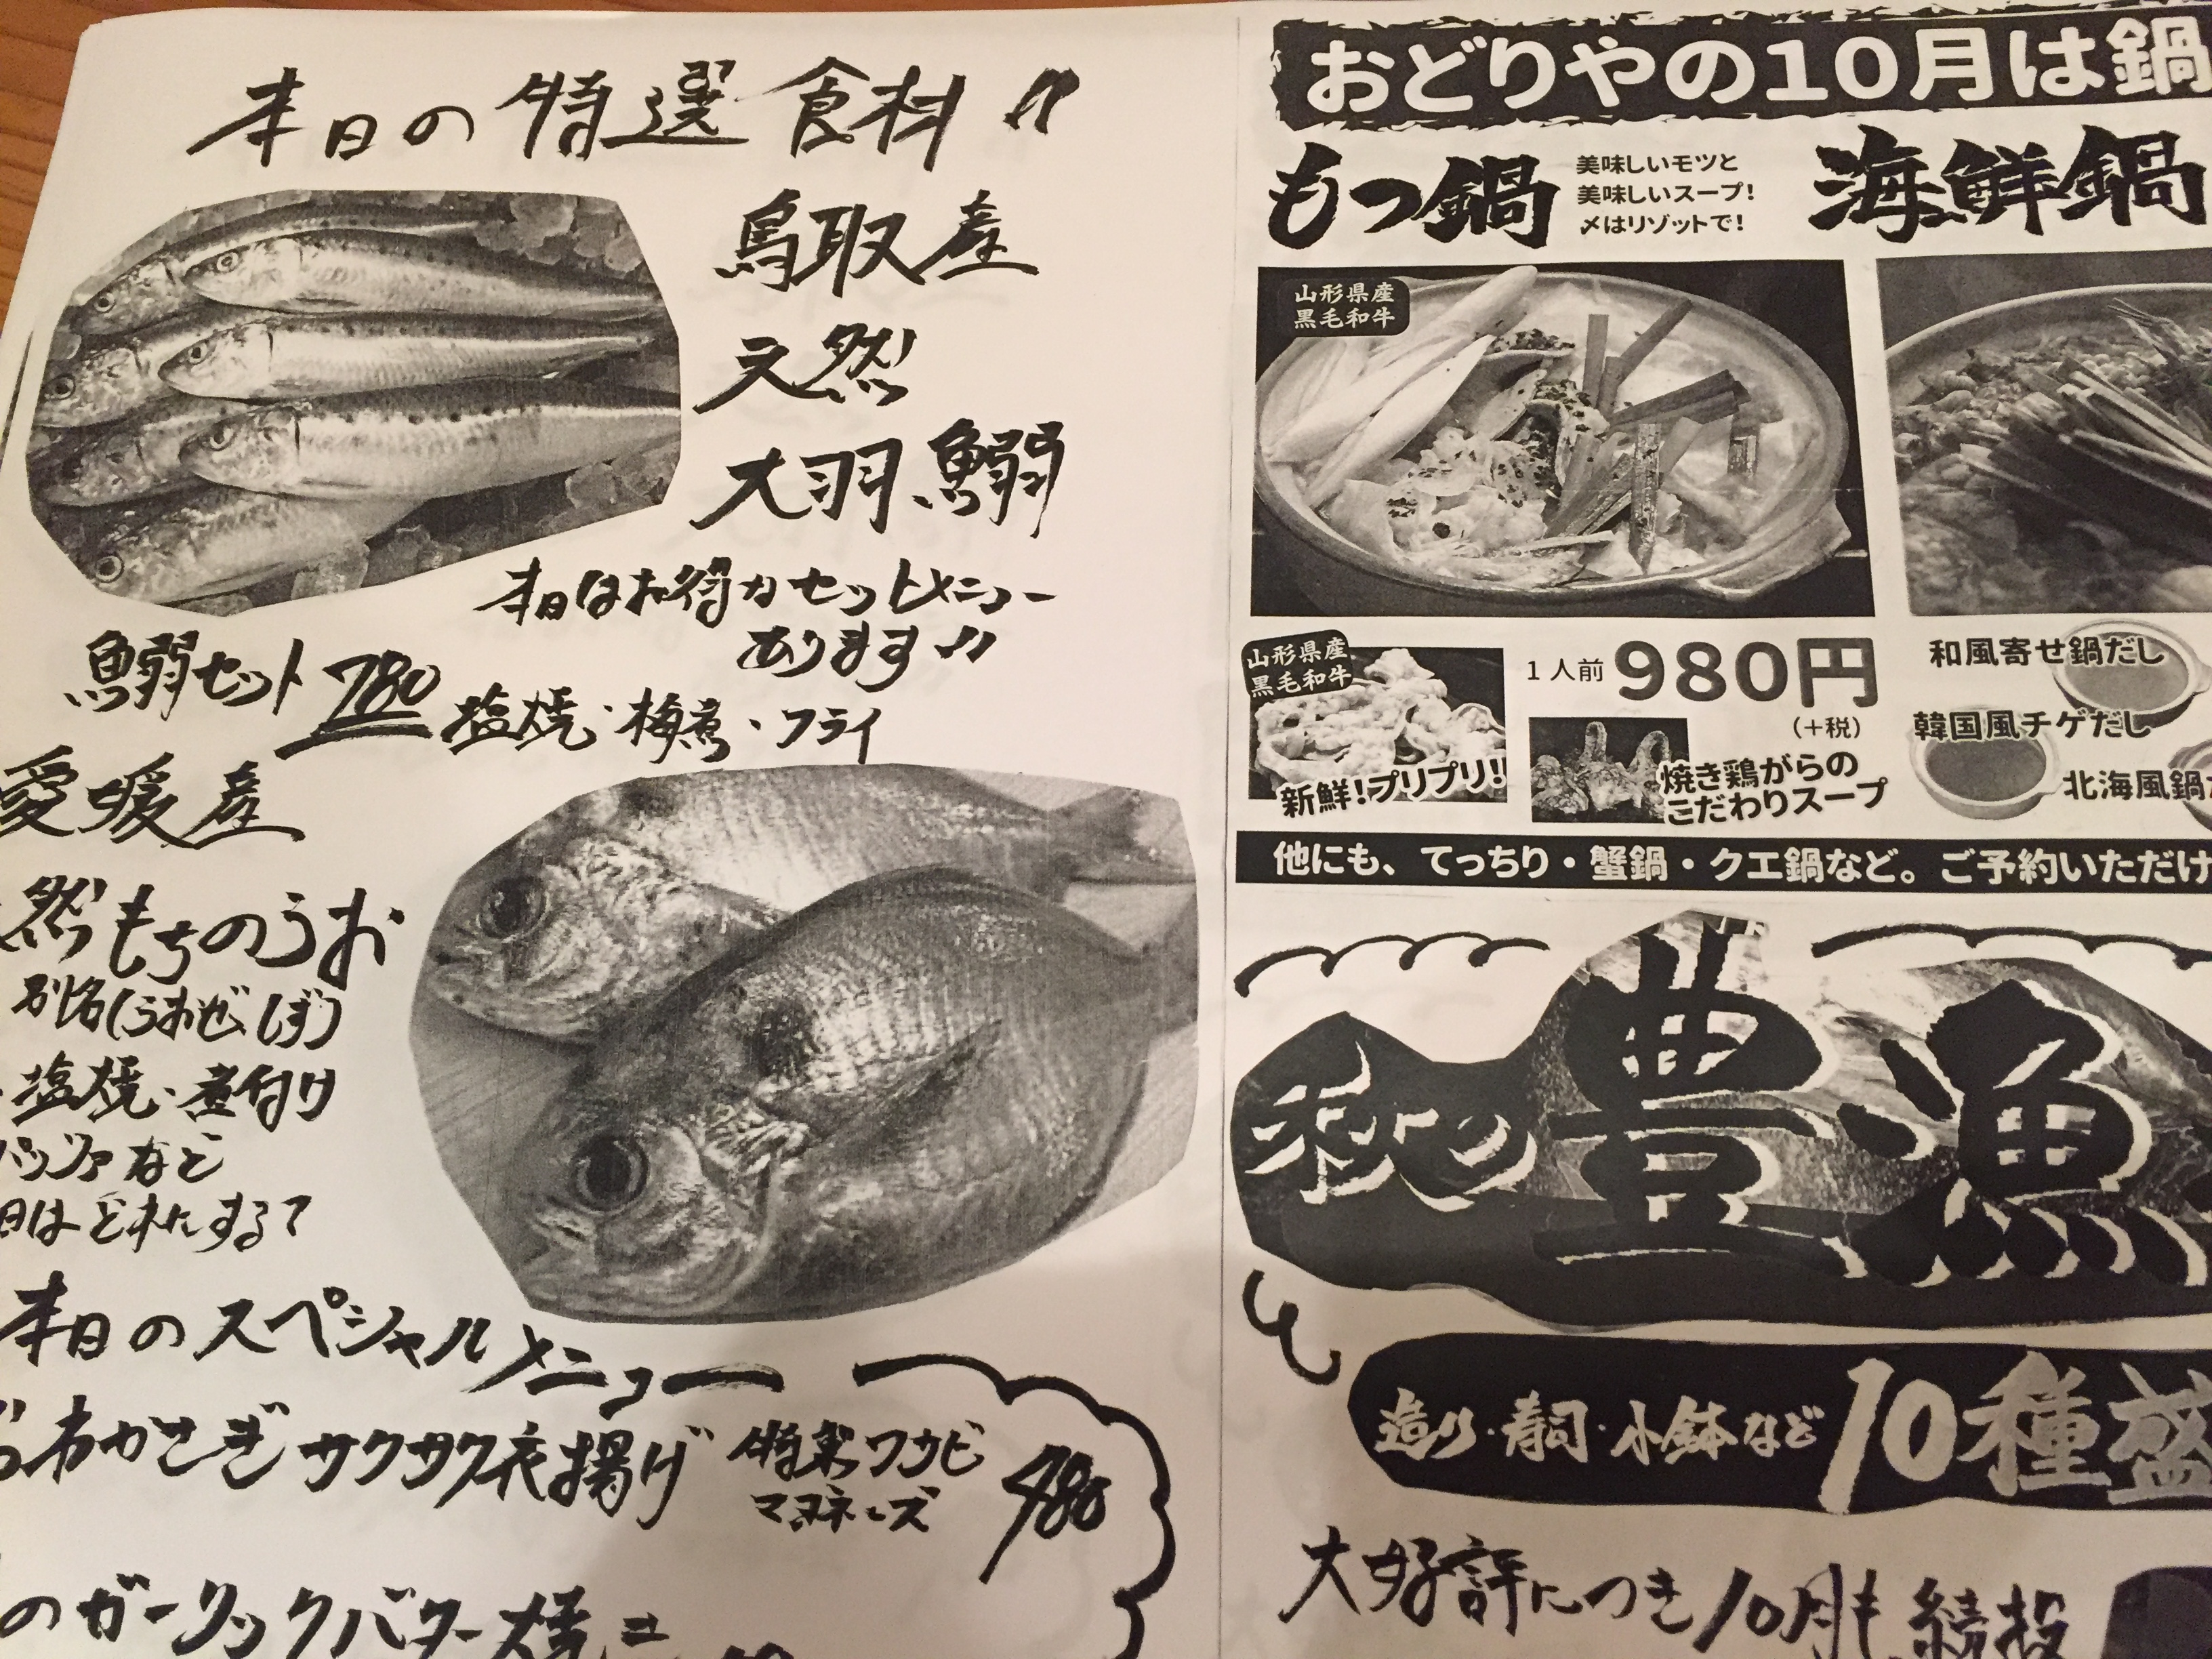 本日の特選食料〃
鳥取産
天然
大羽鰯
本日はお得なセットメニュー
あります〃
鰯セット 780 塩焼・梅煮・フライ
愛媛産
然もちのうお
別名(うおぜ、しず)
塩焼・煮付け
など
日はどれにする?
本日のスペシャルメニュー
わかさぎサクサク衣揚げ 特製ワサビ
マヨネーズ 480
のガーリックバター焼
おどりやの10月は鍋
もつ鍋
美味しいモツと
美味しいスープ!
〆はリゾットで!
海鮮鍋
山形県産
黒毛和牛
山形県産
黒毛和牛
新鮮!プリプリ!
1人前 980円
(+税)
焼き鶏がらの
こだわりスープ
和風寄せ鍋だし
韓国風チゲだし
北海風鍋
他にも、てっちり・蟹鍋・クエ鍋など。ご予約いただけ
秋の豊漁
造り・寿司・小鉢など10種盛
大好評につき10月も続投